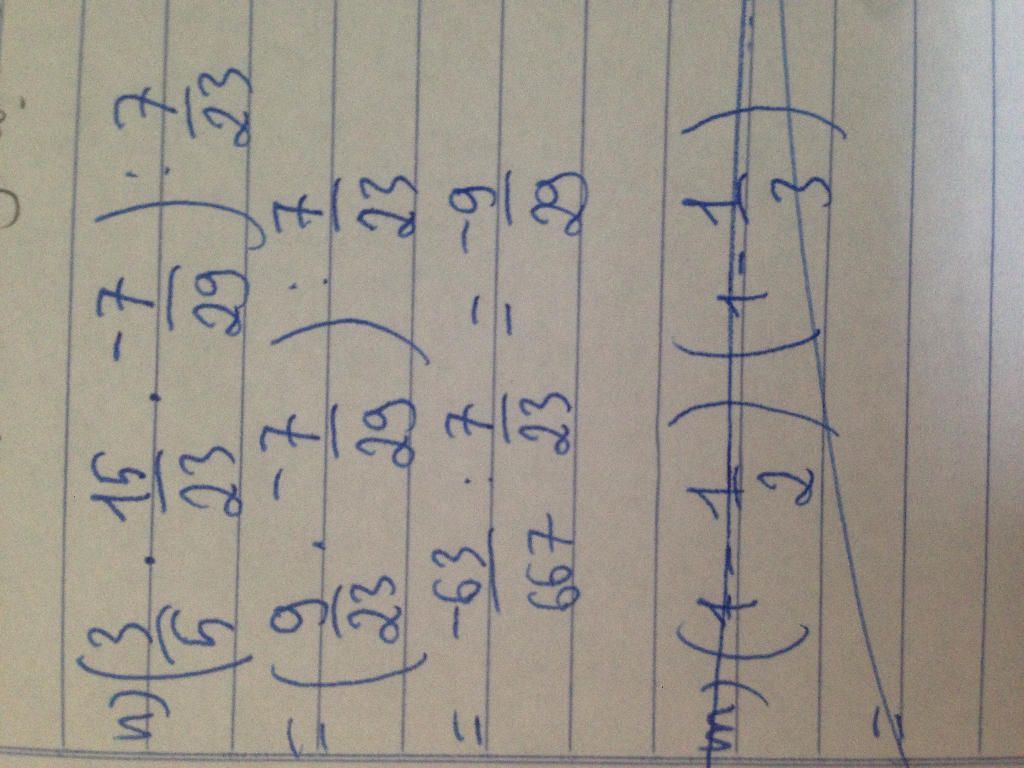 n) (3/5 · 15/23 · -7/29) : 7/23
= (9/23 · -7/29) : 7/23
= -63/667 : 7/23 = -9/29
m) (1 - 1/2) (1 - 1/3)
=